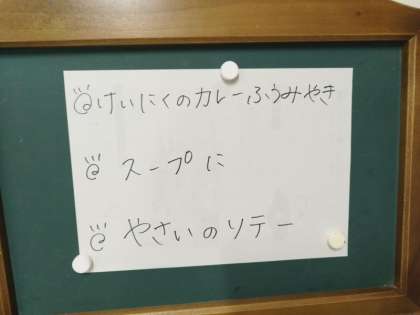 けいにくのカレーふうみやき
スープに
やさいのソテー